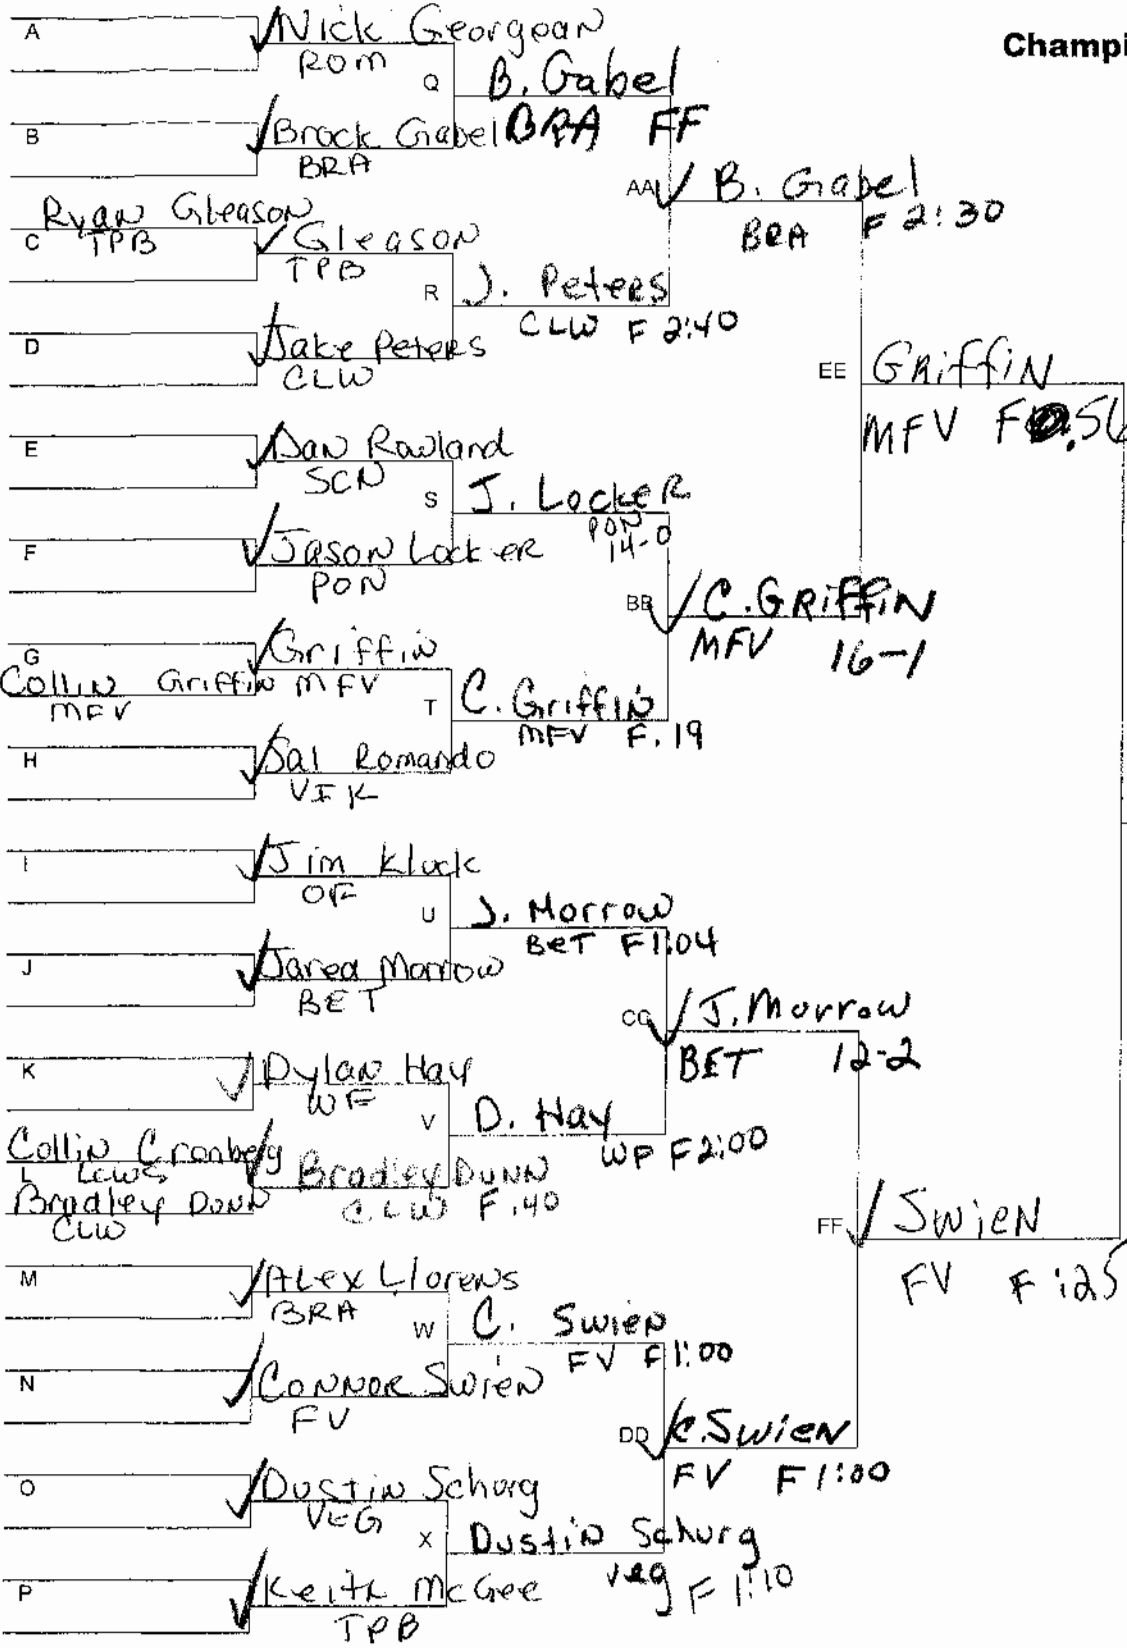 Champi
A
Nick Georgean
ROM
Q
B. Gabel
BRA FF
B
Brock Gabel
BRA
AA
B. Gabel
BRA
F 2:30
Ryan Gleason
C TPB
Gleason
TPB
R
J. Peters
CLW F 2:40
D
Jake Peters
CLW
EE
Griffin
MFV F .56
E
Dan Rowland
SCN
S
J. Locker
PON
14-0
F
Jason Locker
PON
BB
C. Griffin
MFV 16-1
G
Collin Griffin
MFV
Griffin
MFV
T
C. Griffin
MFV F .19
H
Sal Romando
VIK
I
Jim Kluck
OF
U
J. Morrow
BET F 1:04
J
Jared Morrow
BET
CC
J. Morrow
BET 12-2
K
Dylan Hay
WF
V
D. Hay
WF F 2:00
Collin Cronberg
L LEWS
Bradley Dunn
CLW
Bradley Dunn
CLW F .40
FF
Swien
FV F :25
M
Alex Llorens
BRA
W
C. Swien
FV F 1:00
N
Connor Swien
FV
DD
C. Swien
FV F 1:00
O
Dustin Schurg
VEG
X
Dustin Schurg
veg F 1:10
P
Keith McGee
TPB